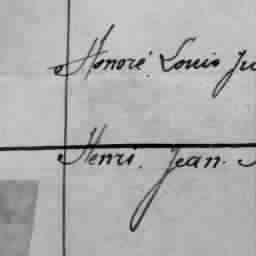 Honoré Louis Ju
Henri. Jean.